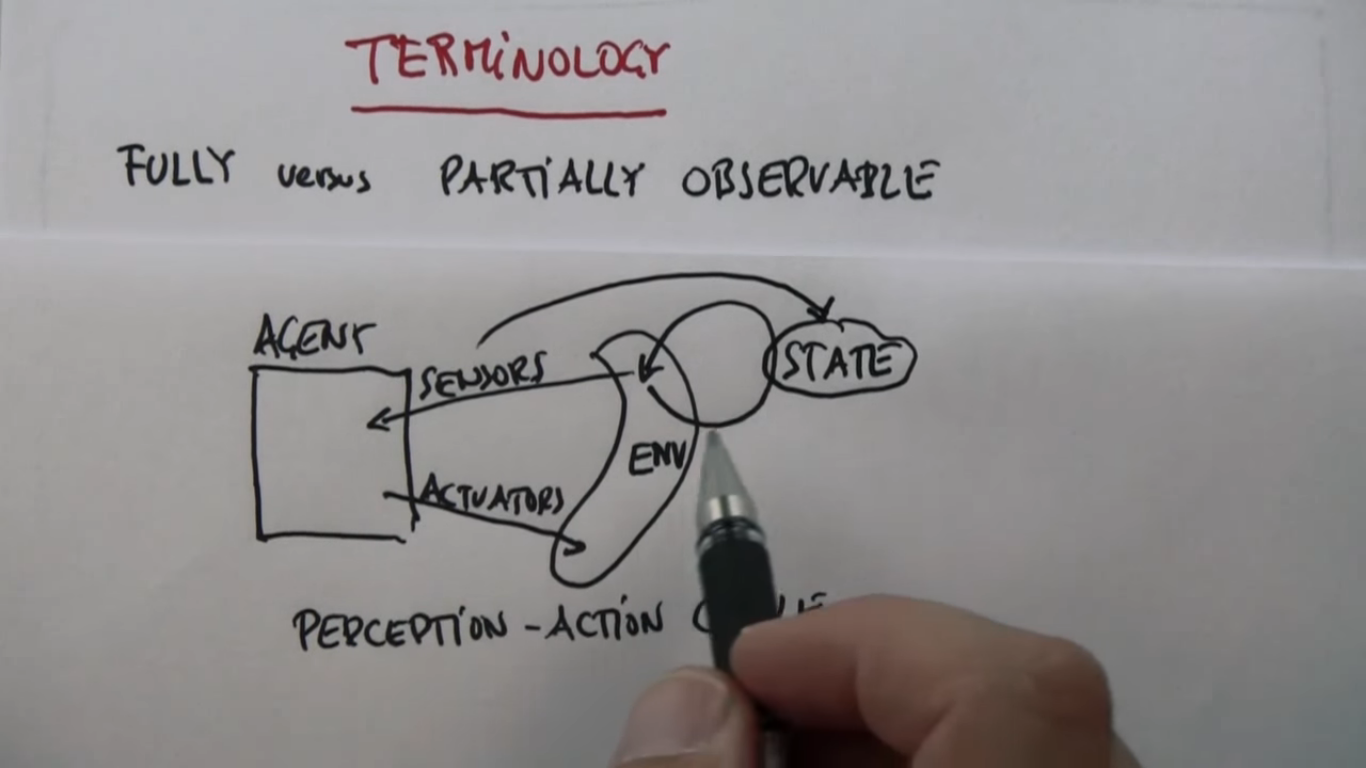 TERMiNOLOGY
FULLY versus PARTiALLY OBSERVABLE
AGENT
SENSORS
STATE
ENV
ACTUATORS
PERCEPTiON - ACTiON